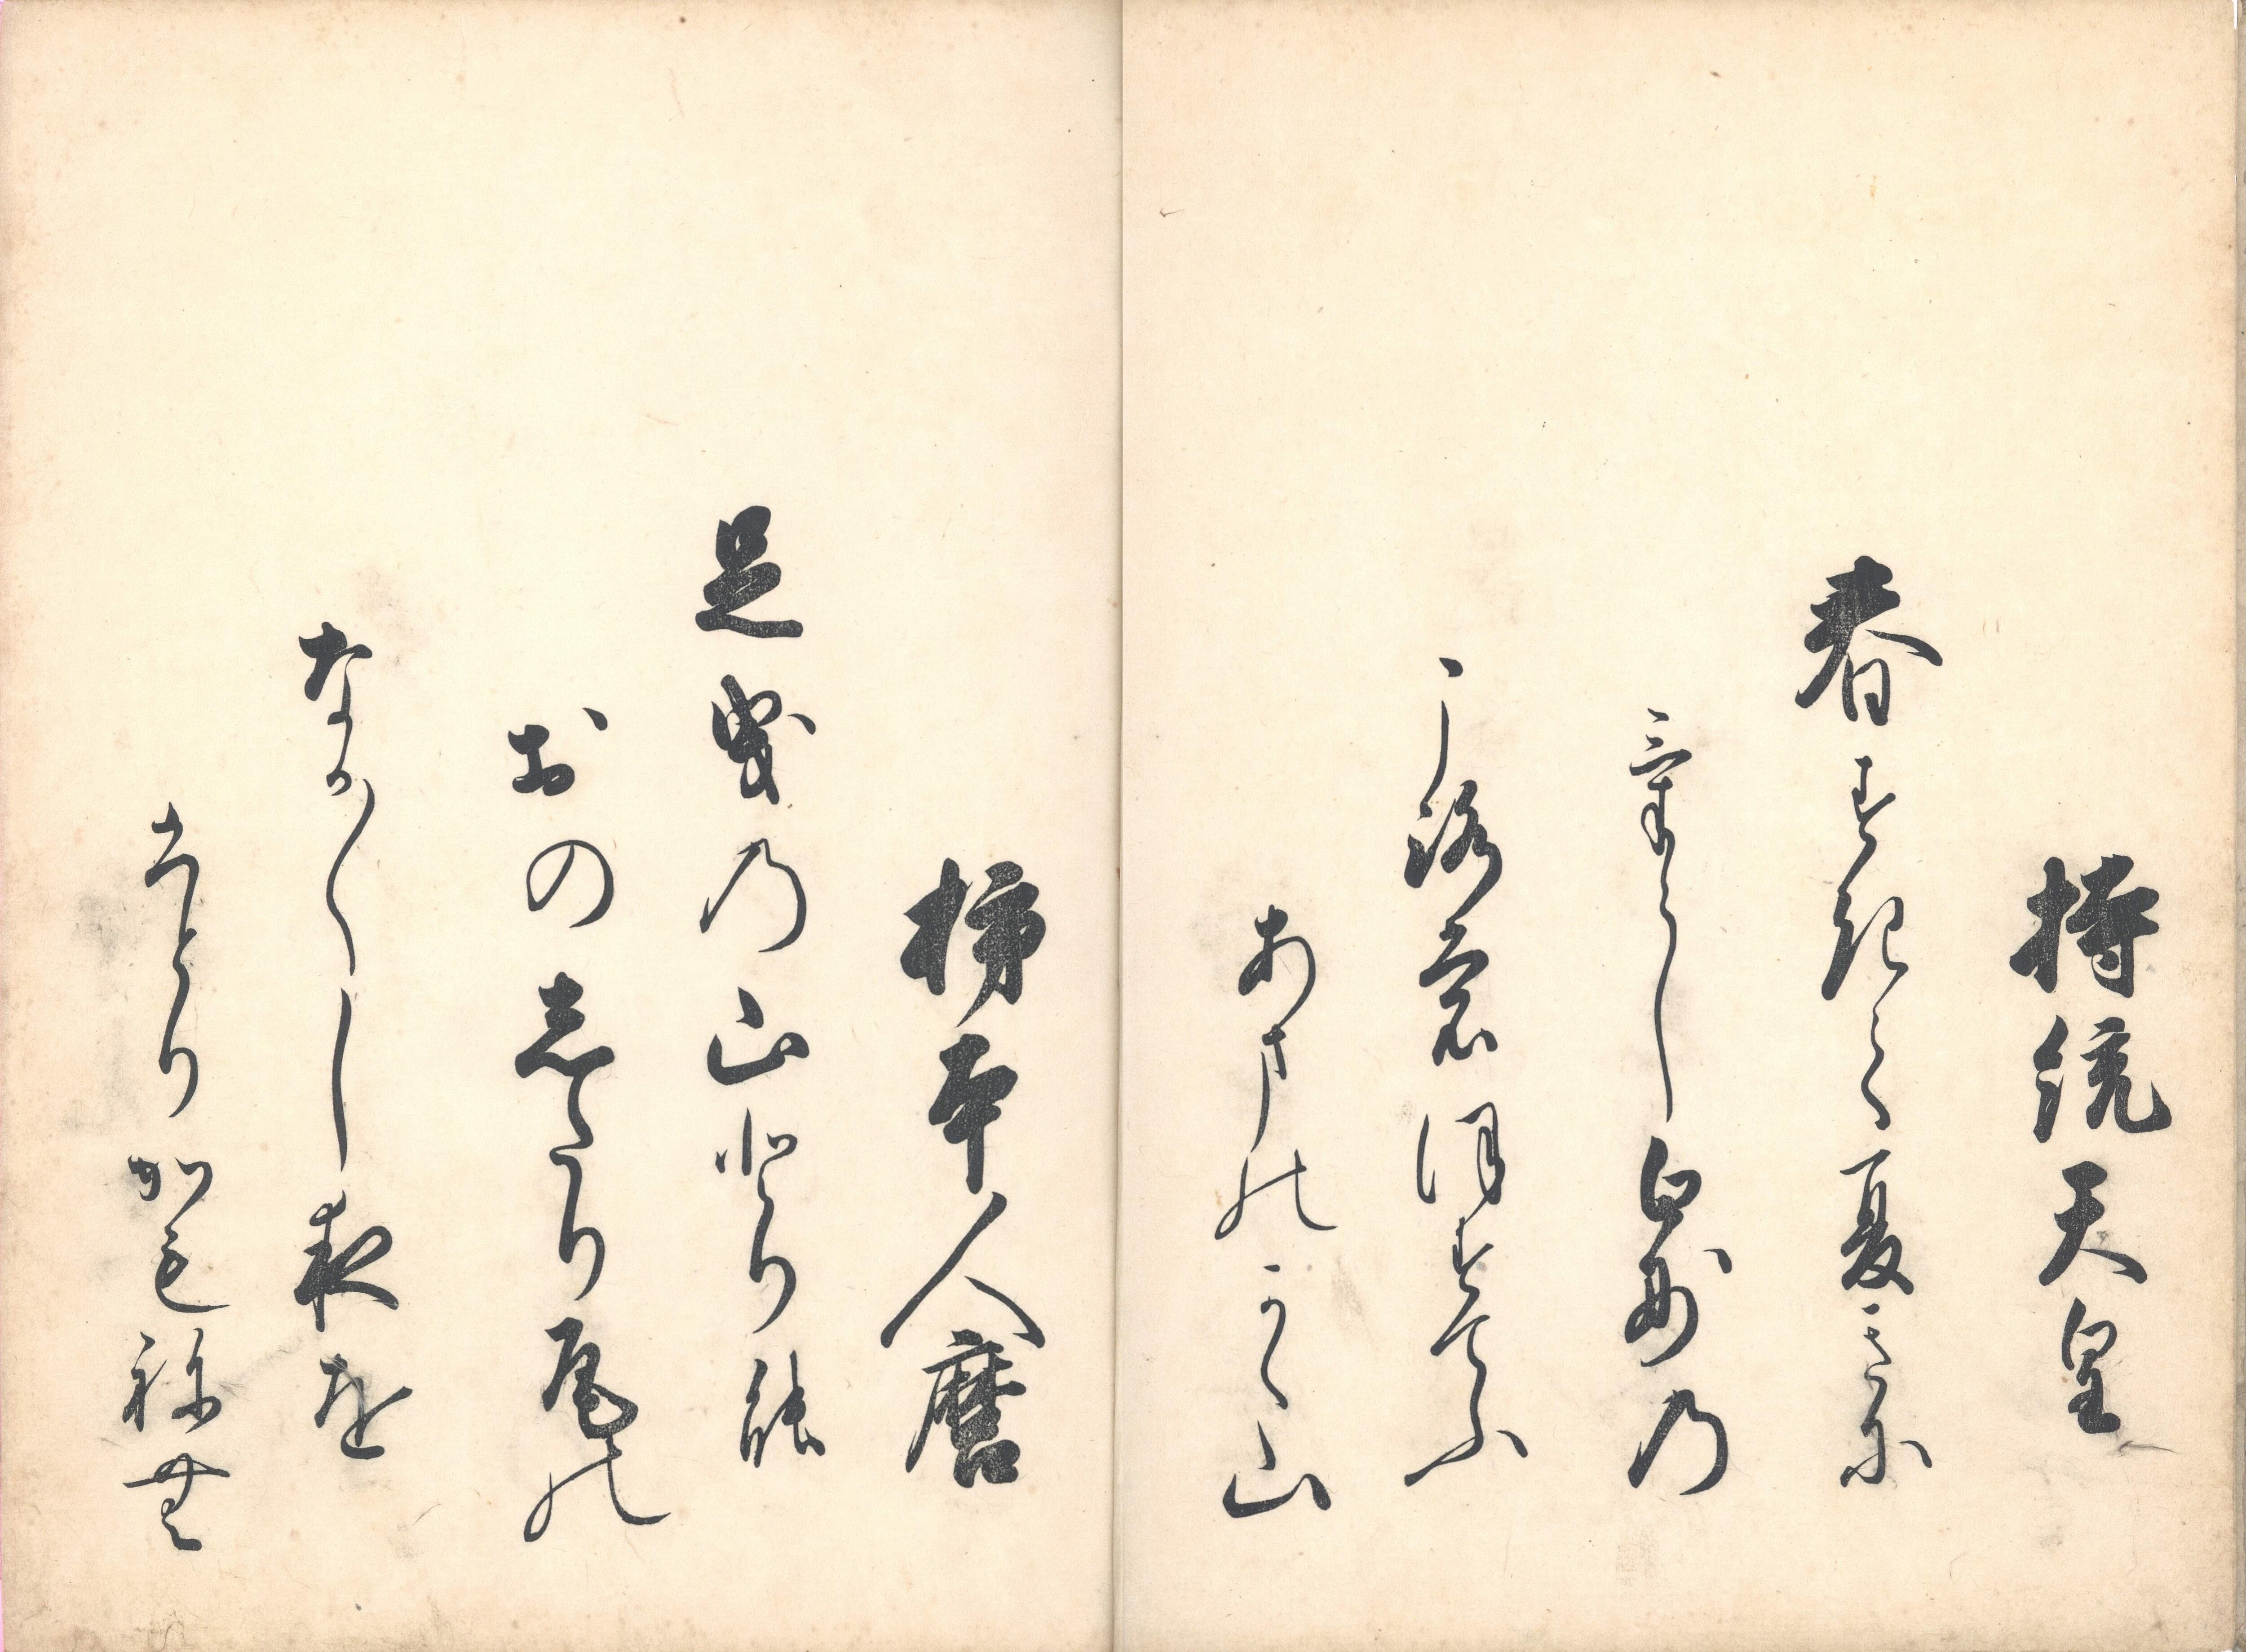 持統天皇
春すきて夏きに
けらし白妙の
ころも本すてふ
あまのかく山
柿本人麿
足曳乃山とり能
おのしたり尾の
なか〱し夜を
ひとりかもね無